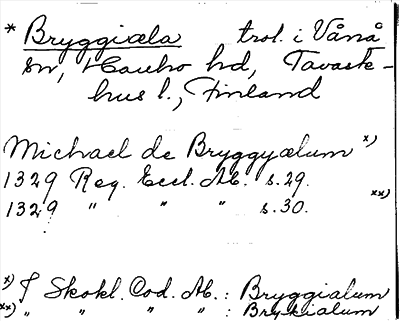 * Bryggiæla trol. i Vånå
sn, Hauho hd, Tavast-
hus l., Finland
Michael de Bryggyælum x)
1329 Reg. Eccl. Ab. s.29.
1329 " " " s.30. xx)
x) J Skokl. Cod. Ab.: Bryggialum
xx) " " " " : Brykialum